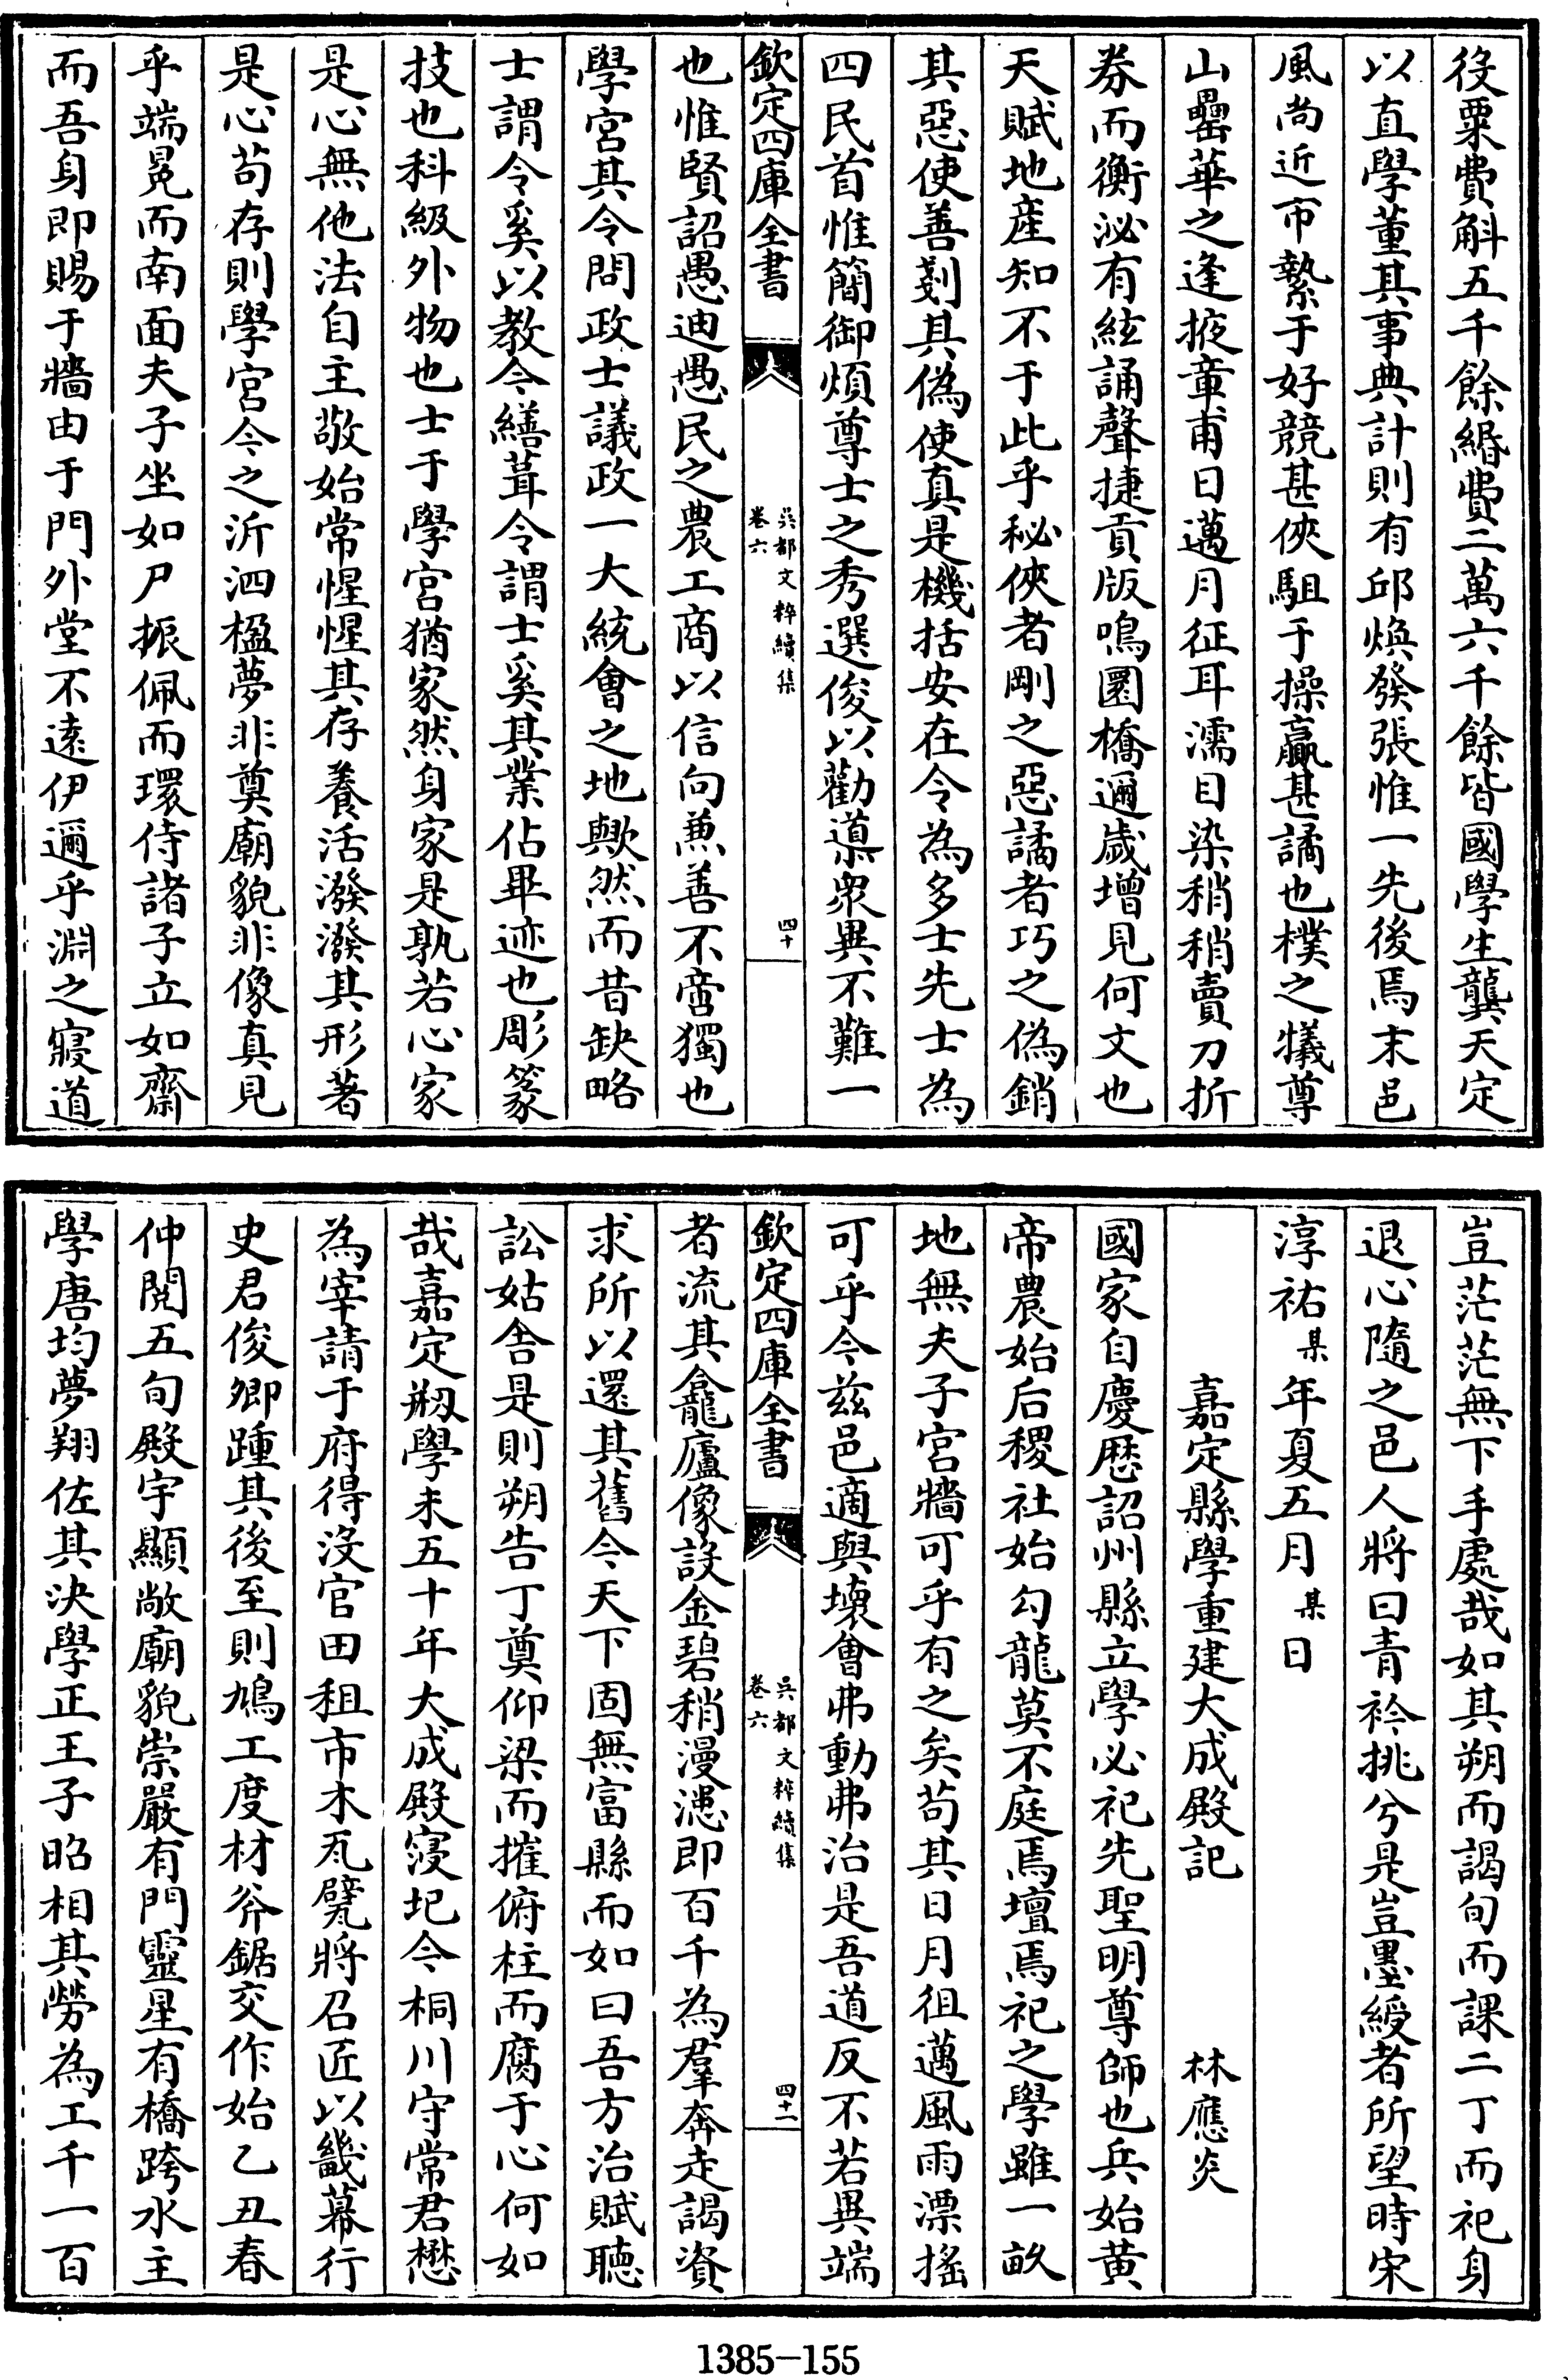 役粟費斛五千餘緡費二萬六千餘皆國學生龔天定
以直學董其事典計則有邱煥發張惟一先後焉末邑
風尚近市縶于好競甚俠駔于操贏甚譎也樸之犧尊
山罍華之逢掖章甫日邁月征耳濡目染稍稍賣刀折
券而衡泌有絃誦聲捷貢版鳴圜橋邇歲增見何文也
天賦地產知不于此乎秘俠者剛之惡譎者巧之偽銷
其惡使善剗其偽使真是機括安在令為多士先士為
四民首惟簡御煩尊士之秀選俊以勸導眾異不難一
欽定四庫全書
吳都文粹續集
卷六
四十
也惟賢詔愚迪愚民之農工商以信向兼善不啻獨也
學宮其令問政士議政一大統會之地歟然而昔缺略
士謂令奚以教令繕葺令謂士奚其業佔畢迹也彫篆
技也科級外物也士于學宮猶家然身家是孰若心家
是心無他法自主敬始常惺惺其存養活潑潑其形著
是心苟存則學宮令之沂泗楹夢非奠廟貌非像真見
乎端冕而南面夫子坐如尸振佩而環侍諸子立如齋
而吾身即賜于牆由于門外堂不遠伊邇乎淵之寢道
豈茫茫無下手處哉如其朔而謁旬而課二丁而祀身
退心隨之邑人將曰青衿挑兮是豈墨綬者所望時宋
淳祐某年夏五月某日
嘉定縣學重建大成殿記　林應炎
國家自慶歷詔州縣立學必祀先聖明尊師也兵始黃
帝農始后稷社始勾龍莫不庭焉壇焉祀之學雖一畝
地無夫子宮牆可乎有之矣苟其日月徂邁風雨漂搖
可乎今茲邑適與壞會弗動弗治是吾道反不若異端
欽定四庫全書
吳都文粹續集
卷六
四十一
者流其龕廬像設金碧稍漫漶即百千為羣奔走謁資
求所以還其舊今天下固無富縣而如曰吾方治賦聽
訟姑舍是則朔告丁奠仰梁而摧俯柱而腐于心何如
哉嘉定剏學未五十年大成殿寖圮今桐川守常君懋
為宰請于府得沒官田租市木瓦甓將召匠以畿幕行
史君俊卿踵其後至則鳩工度材斧鋸交作始乙丑春
仲閱五旬殿宇顯敞廟貌崇嚴有門靈星有橋跨水主
學唐均夢翔佐其決學正王子昭相其勞為工千一百
1385-155